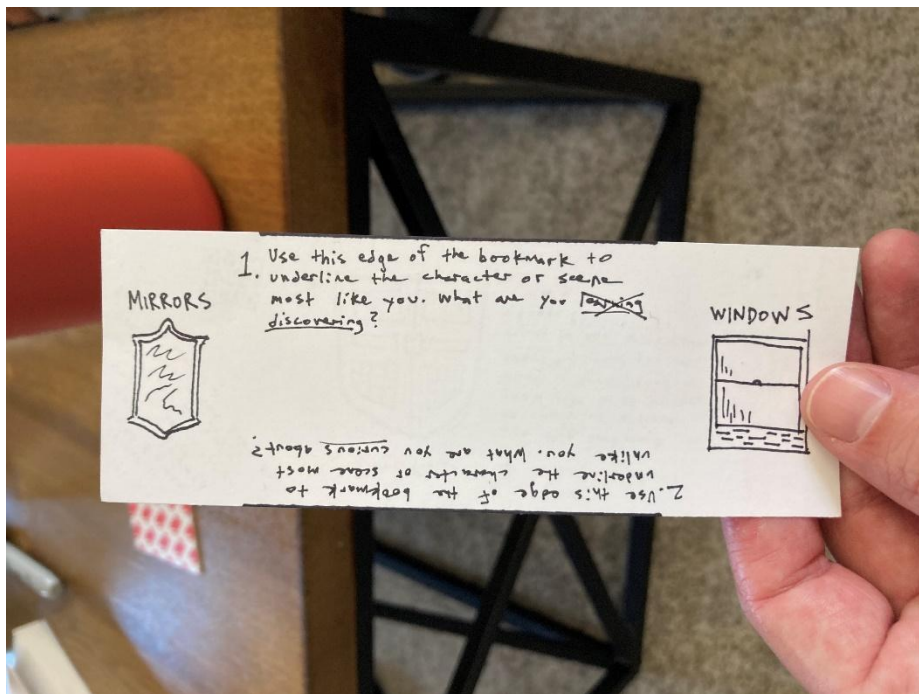 MIRRORS
1. Use this edge of the bookmark to
underline the character or scene
most like you. What are you learning
discovering?
WINDOWS
2. Use this edge of the bookmark to
underline the character or scene most
unlike you. What are you curious about?